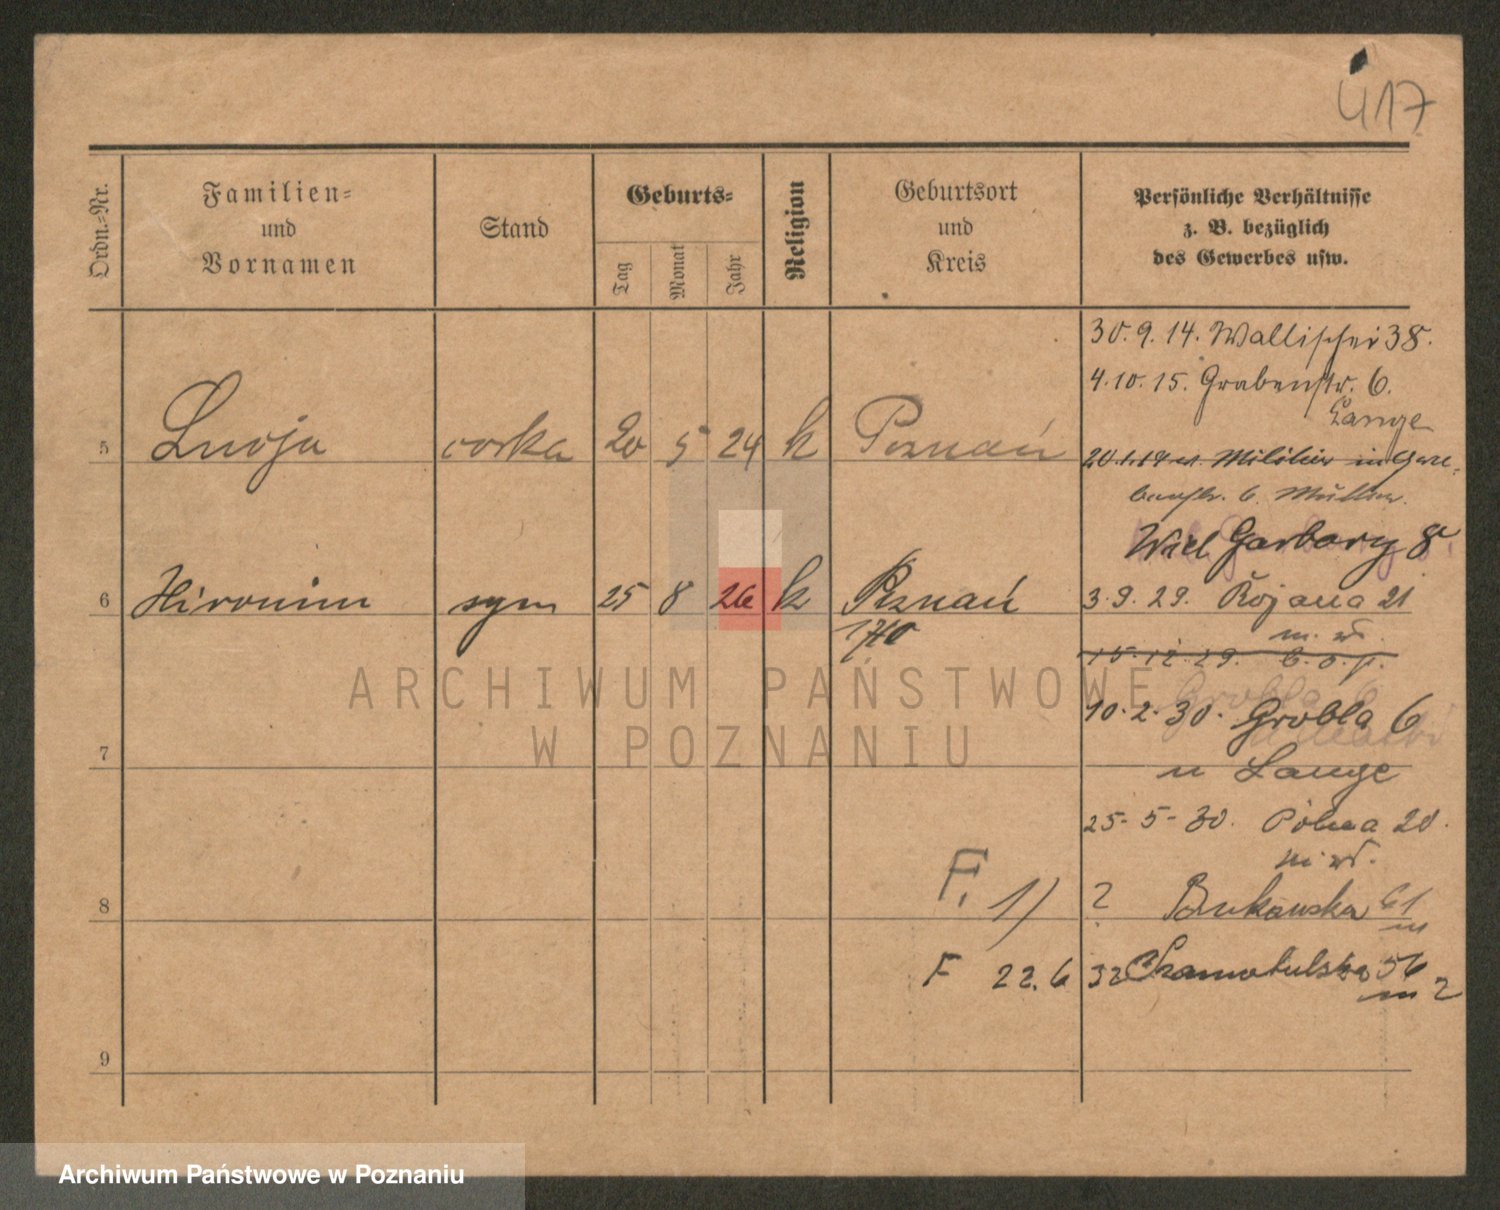 417
Ordn.=Nr.
Familien=
und
Vornamen
Stand
Geburts=
Tag
Monat
Jahr
Religion
Geburtsort
und
Kreis
Persönliche Verhältnisse
z. B. bezüglich
des Gewerbes usw.
30. 9. 14. Wallischei 38.
4. 10. 15. Grabenstr. 6.
Lange
5 córka 20 5 24 k Poznań
Militär in
6. Müller.
Garbary 8
6 Hironim syn 25 8 26 k Poznań
3. 9. 29. 21
15. 12. 29.
10. 2. 30. Grobla 6
7
u Lange
25. 5. 30. Polna 20.
F. 1)
8 ? Bukowska 61
F 22. 6 32 Szamotulska 56
m 2
9
ARCHIWUM PAŃSTWOWE
W POZNANIU
Archiwum Państwowe w Poznaniu